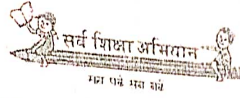 सर्व शिक्षा अभियान
सब पढें सब बढें